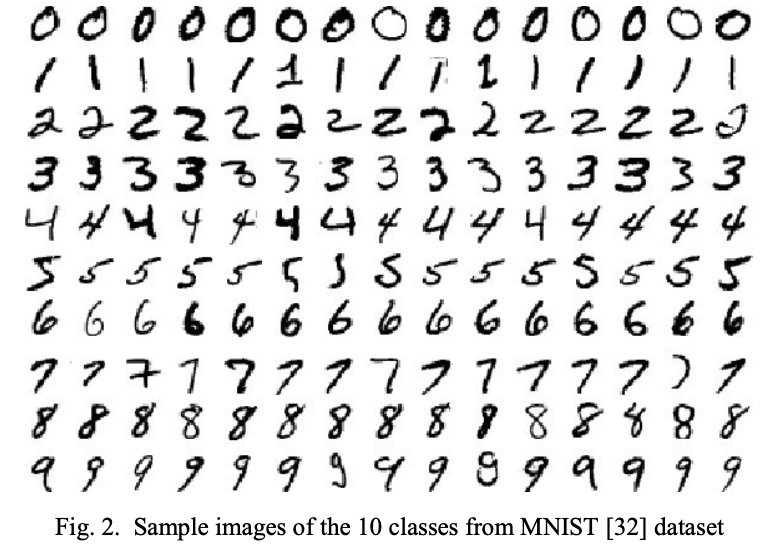 0 0 0 0 0 0 0 0 0 0 0 0 0 0 0
1 1 1 1 1 1 1 1 1 1 1 1 1 1 1
2 2 2 2 2 2 2 2 2 2 2 2 2 2 2
3 3 3 3 3 3 3 3 3 3 3 3 3 3 3
4 4 4 4 4 4 4 4 4 4 4 4 4 4 4
5 5 5 5 5 5 5 5 5 5 5 5 5 5 5
6 6 6 6 6 6 6 6 6 6 6 6 6 6 6
7 7 7 7 7 7 7 7 7 7 7 7 7 7 7
8 8 8 8 8 8 8 8 8 8 8 8 8 8 8
9 9 9 9 9 9 9 9 9 9 9 9 9 9 9
Fig. 2. Sample images of the 10 classes from MNIST [32] dataset